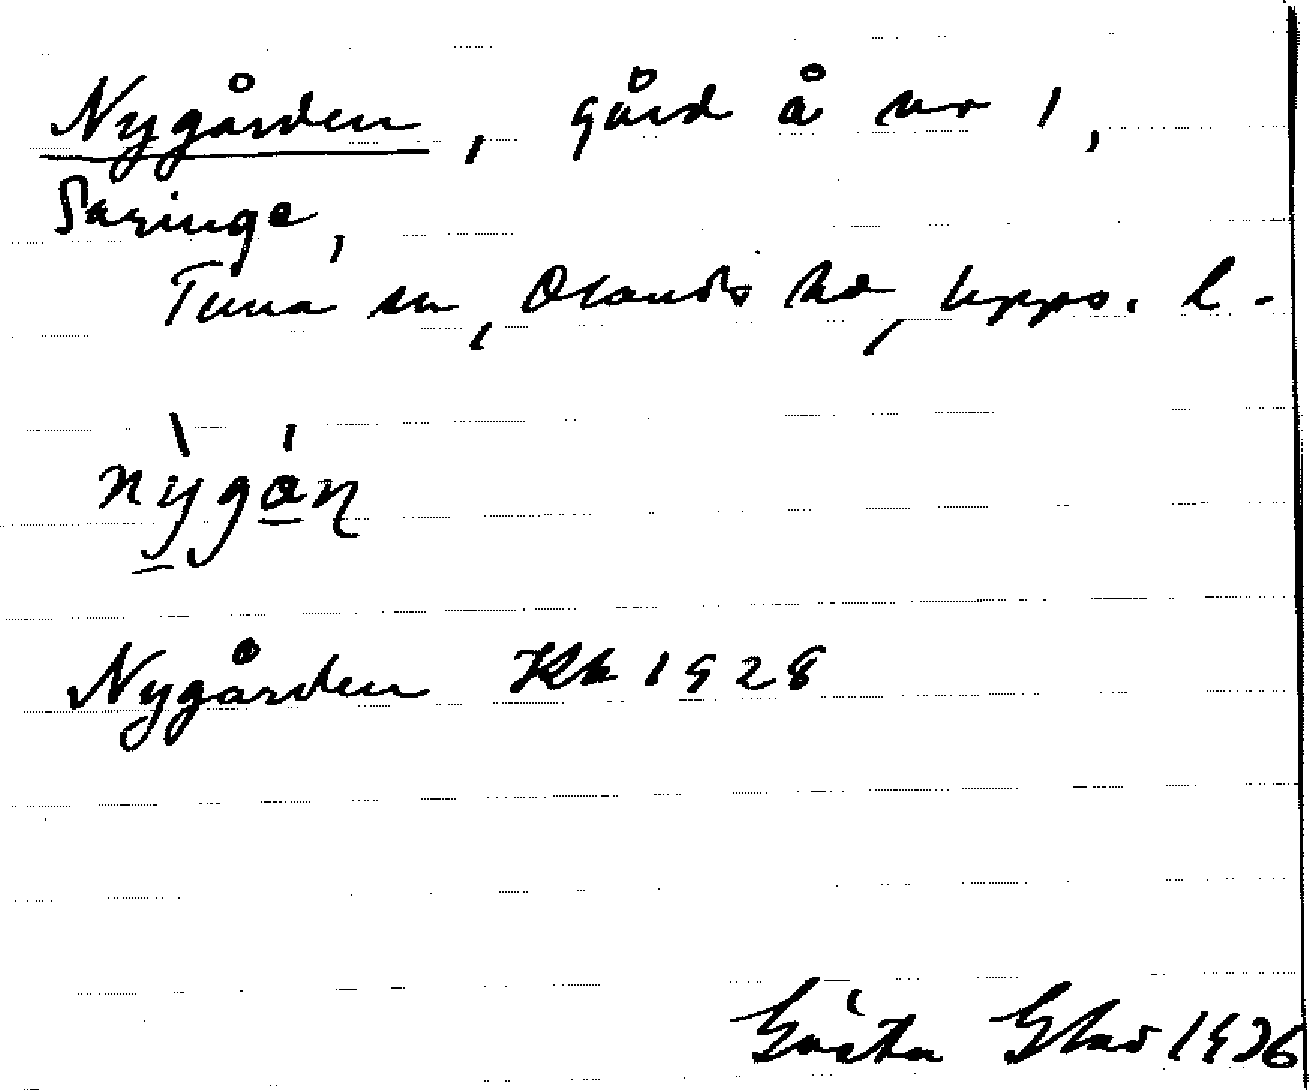 Nygården, gård å nr 1,
Saringe,
Tuna sn, Olands hd, Upps. l.
nỳgán
Nygården Kb 1928
Gösta Glad 1936